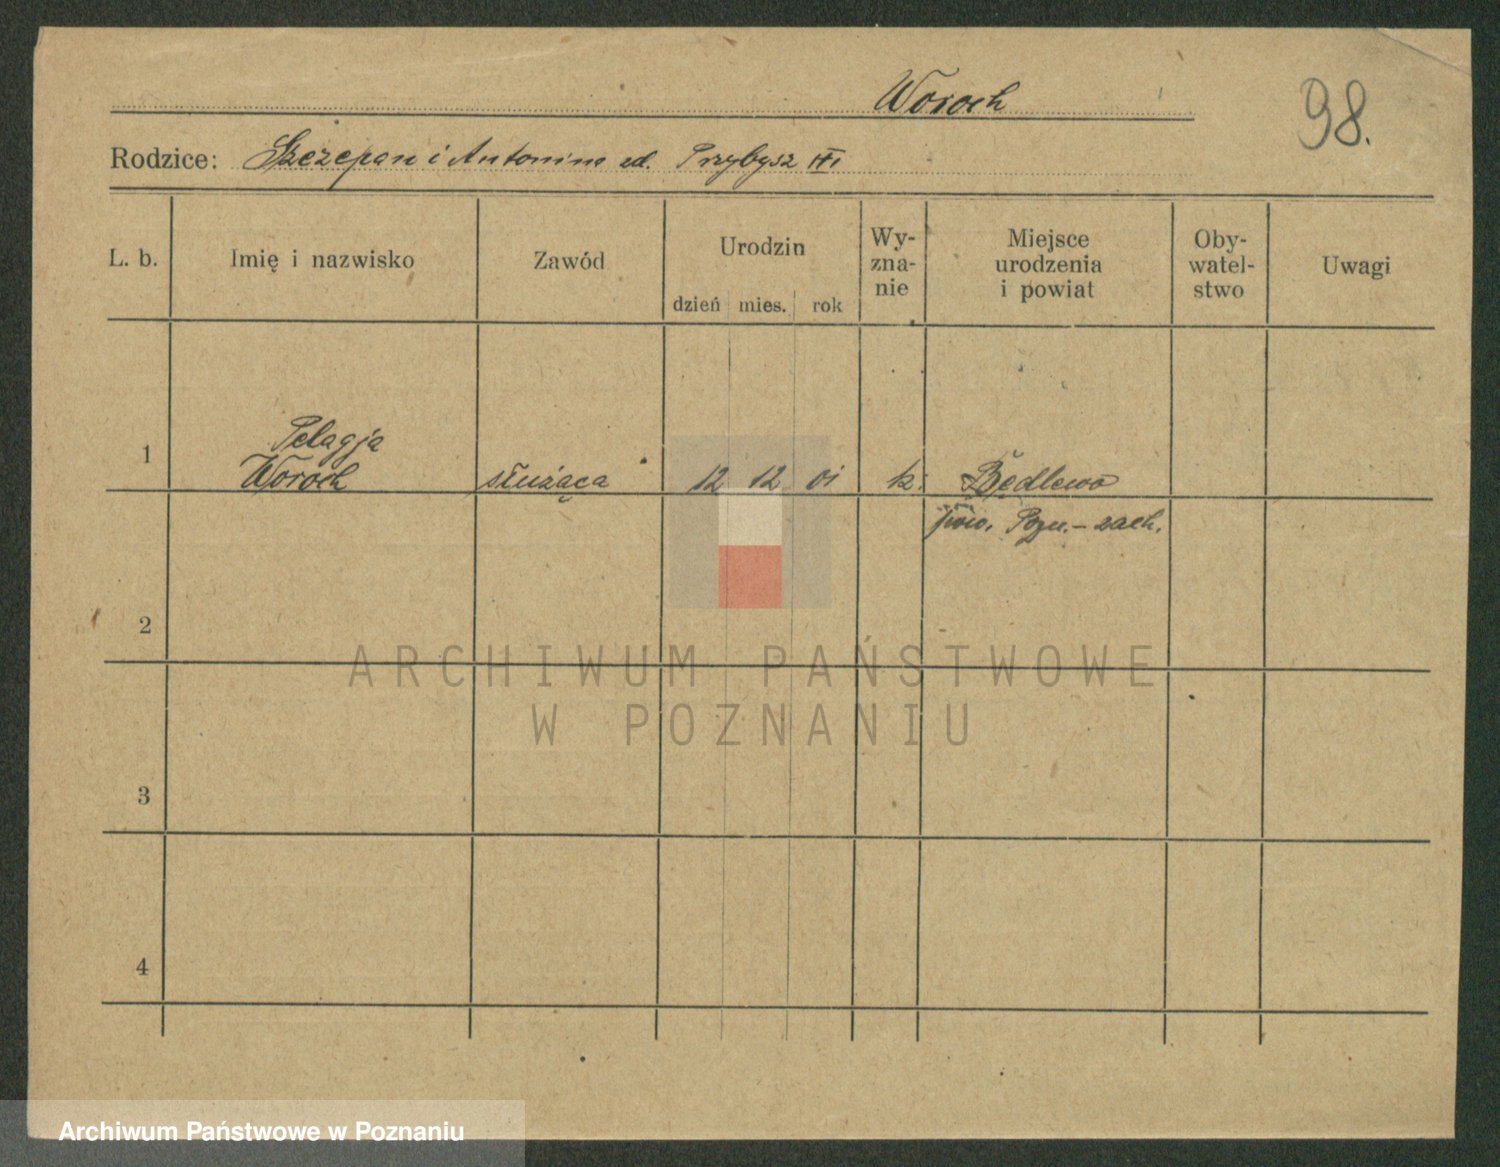 Woroch
98.
Rodzice: Szczepan i Antonina zd. Przybysz
L. b. Imię i nazwisko Zawód Urodzin dzień mies. rok Wy-zna-nie Miejsce urodzenia i powiat Oby-watel-stwo Uwagi
Pelagja
1 Woroch służąca 12 12 01 k. Będlewo
pow. Pozn. - zach.
2
ARCHIWUM PAŃSTWOWE
W POZNANIU
3
4
Archiwum Państwowe w Poznaniu